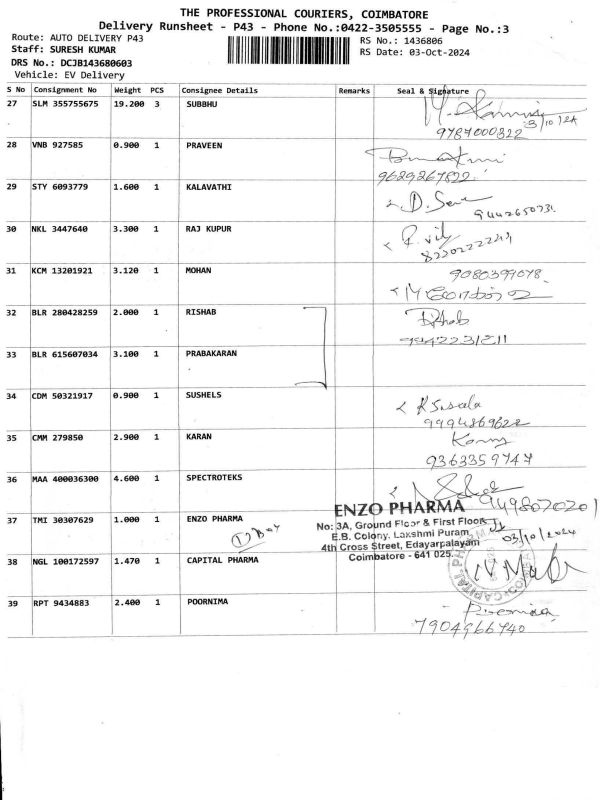 THE PROFESSIONAL COURIERS, COIMBATORE
Delivery Runsheet - P43 - Phone No.:0422-3505555 - Page No.:3
Route: AUTO DELIVERY P43
Staff: SURESH KUMAR
DRS No.: DCJB143680603
Vehicle: EV Delivery
RS No.: 1436806
RS Date: 03-Oct-2024
S No Consignment No Weight PCS Consignee Details Remarks Seal & Signature
27 SLM 355755675 19.200 3 SUBBHU
3/10/24
9787000322
28 VNB 927585 0.900 1 PRAVEEN
9629267822
29 STY 6093779 1.600 1 KALAVATHI
9442650731
30 NKL 3447640 3.300 1 RAJ KUPUR
31 KCM 13201921 3.120 1 MOHAN
9080399078
32 BLR 280428259 2.000 1 RISHAB
Rishab
9942231211
33 BLR 615607034 3.100 1 PRABAKARAN
34 CDM 50321917 0.900 1 SUSHELS
K Suseela
9994869622
35 CMM 279850 2.900 1 KARAN
9363359747
36 MAA 400036300 4.600 1 SPECTROTEKS
9498070201
37 TMI 30307629 1.000 1 ENZO PHARMA
1 Box
ENZO PHARMA
No: 3A, Ground Floor & First Floor
E.B. Colony, Laxshmi Puram,
4th Cross Street, Edayarpalayam
Coimbatore - 641 025.
03/10/2024
38 NGL 100172597 1.470 1 CAPITAL PHARMA
CAPITAL PHARMA
39 RPT 9434883 2.400 1 POORNIMA
7904966940